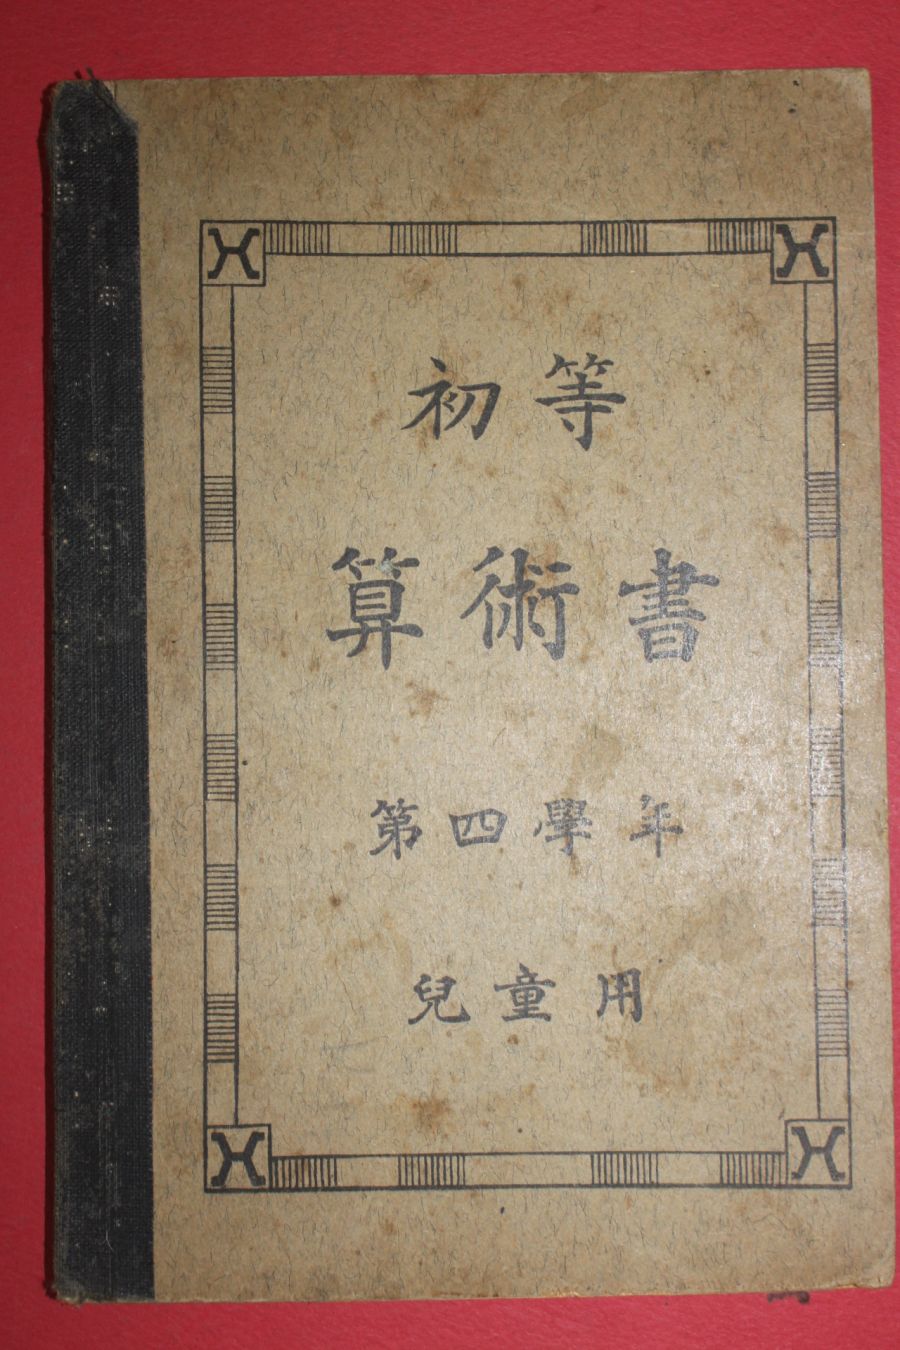 初等
算術書
第四學年
兒童用